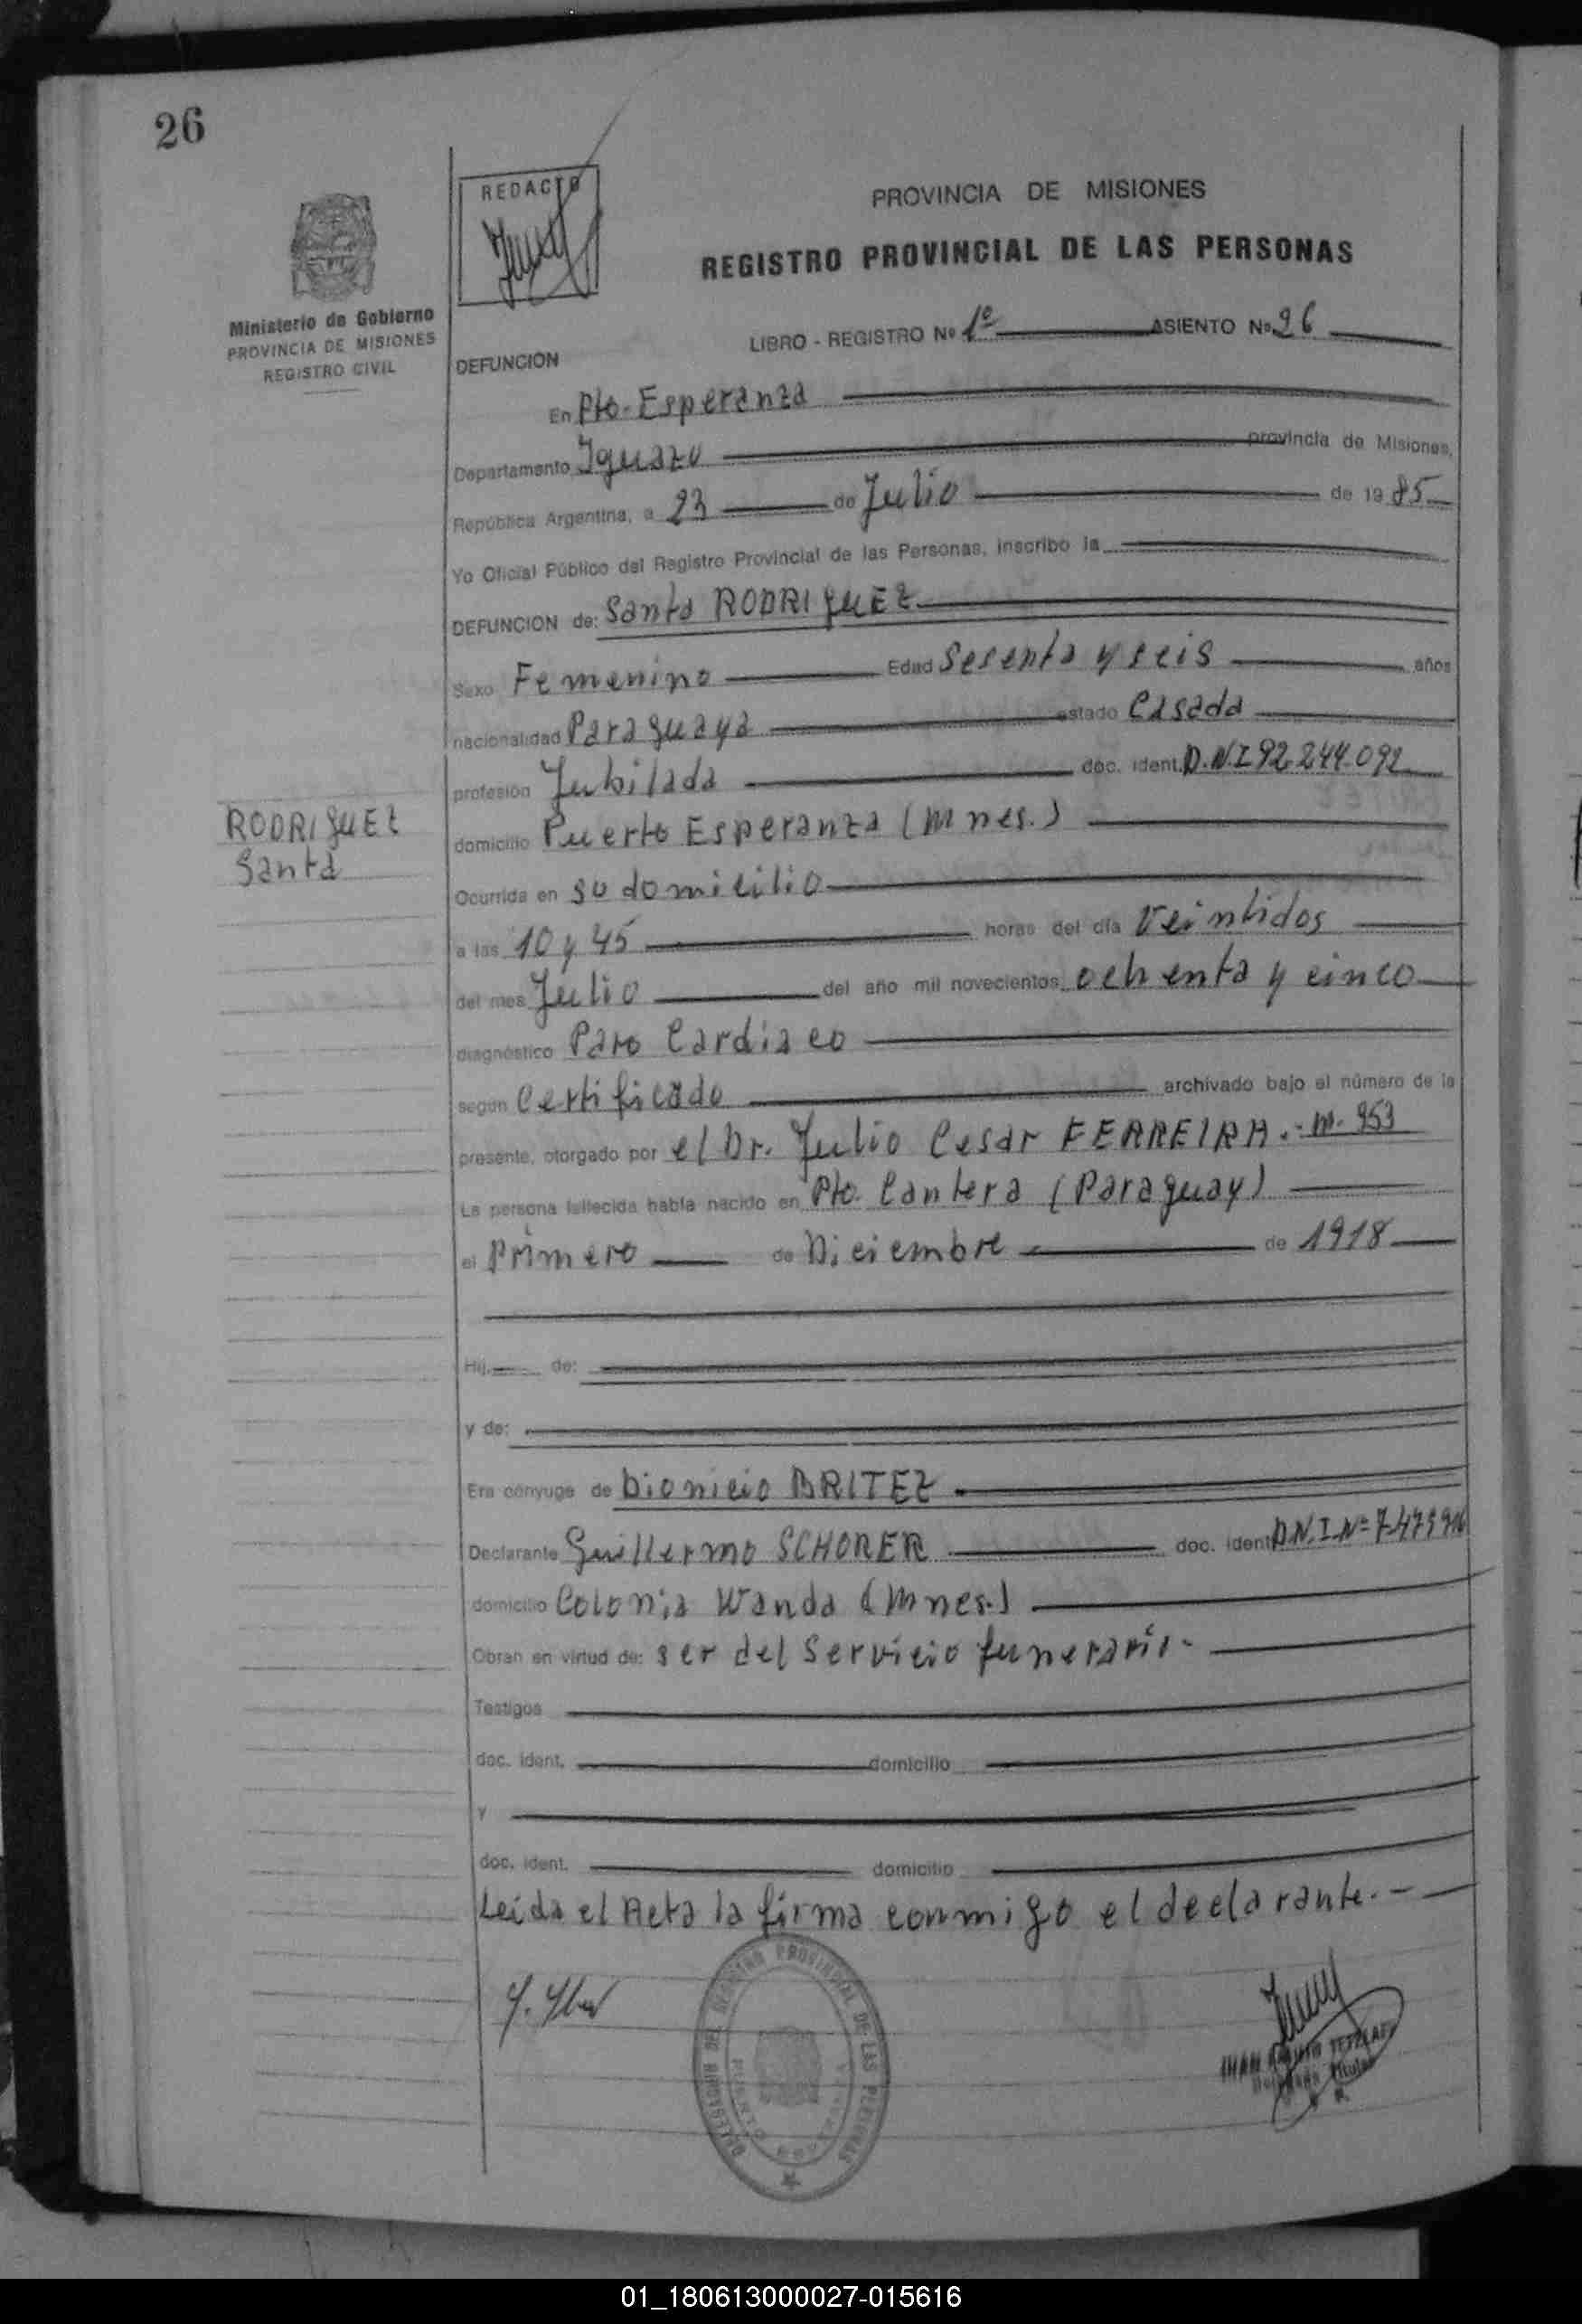 26
REDACTO
PROVINCIA DE MISIONES
REGISTRO PROVINCIAL DE LAS PERSONAS
Ministerio de Gobierno
PROVINCIA DE MISIONES
REGISTRO CIVIL
LIBRO - REGISTRO Nº 1º ASIENTO Nº 26
DEFUNCION
En Pto. Esperanza
Departamento Iguazu provincia de Misiones,
República Argentina, a 23 de Julio de 19 85
Yo Oficial Público del Registro Provincial de las Personas, inscribo la
DEFUNCION de: Santa RODRIGUEZ
Sexo Femenino Edad Sesenta y seis años
nacionalidad Paraguaya estado Casada
profesión Jubilada doc. ident. D.N.I 92.244.092
RODRIGUEZ
Santa
domicilio Puerto Esperanza (Mnes.)
Ocurrida en su domicilio
a las 10 y 45 horas del día Veintidos
del mes Julio del año mil novecientos ochenta y cinco
diagnóstico Paro Cardiaco
según Certificado archivado bajo el número de la
presente, otorgado por el Dr. Julio Cesar FERREIRA.- M. 953
La persona fallecida había nacido en Pto. Cantera (Paraguay)
el Primero de Diciembre de 1918
Hij de:
y de:
Era cónyuge de Dionicio BRITEZ
Declarante Guillermo SCHORER doc. ident D.N.I.Nº
domicilio Colonia Wanda (Mnes.)
Obran en virtud de: ser del Servicio funerario-
Testigos
doc. ident. domicilio
y
doc. ident. domicilio
Leida el Acta la firma conmigo el declarante.-
DELEGACION DEL REGISTRO PROVINCIAL DE LAS PERSONAS
01_180613000027-015616